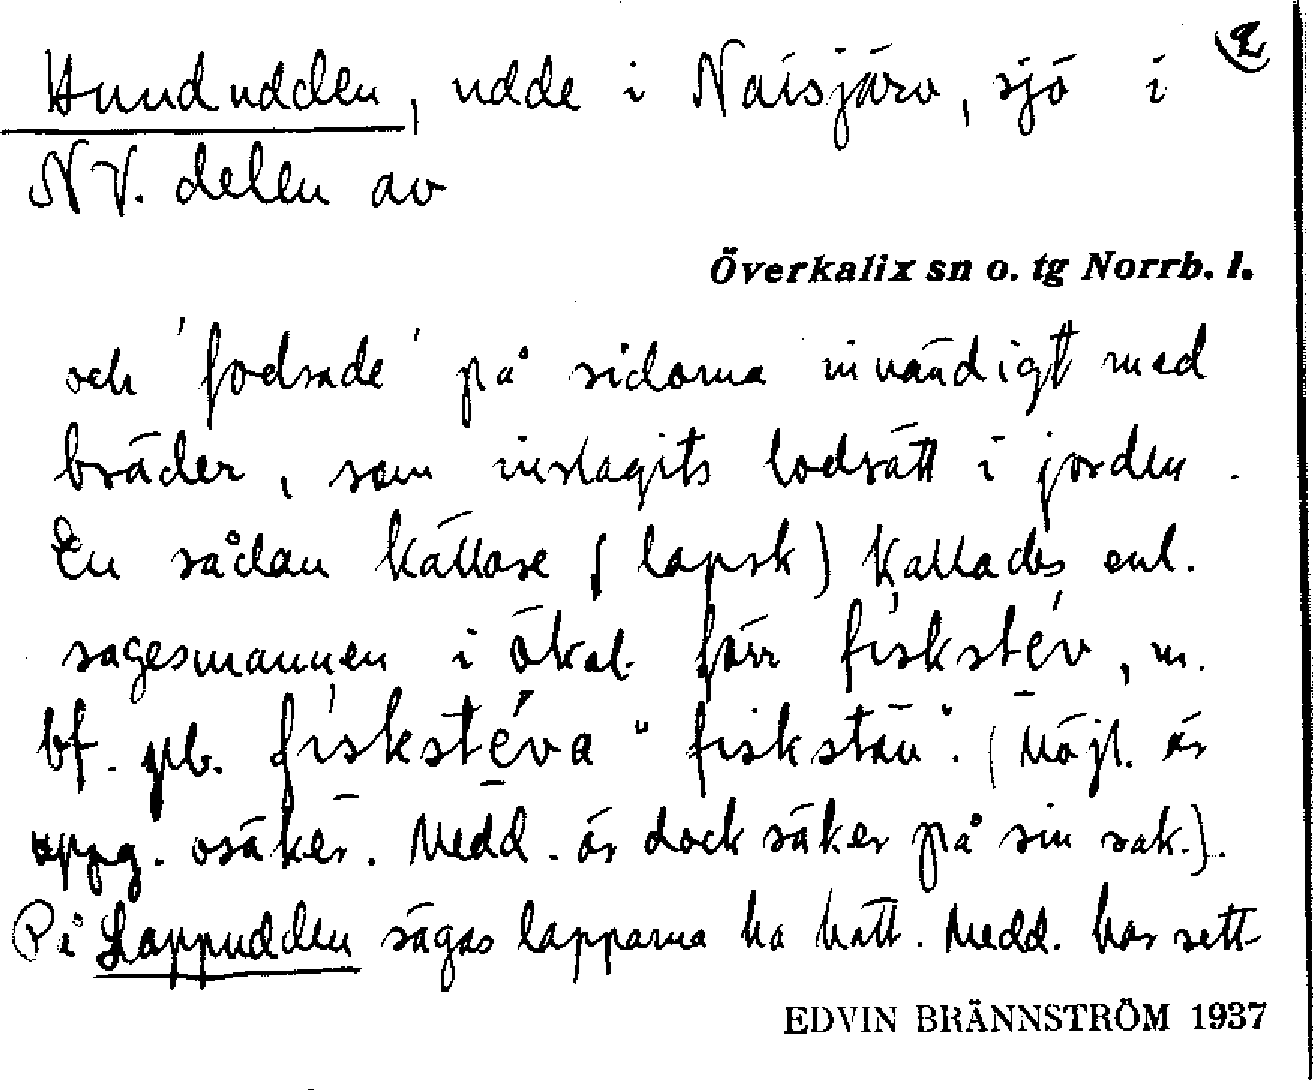 Hundudden, udde i Naisjärv, sjö i
2
NV. delen av
Överkalix sn o. tg Norrb. l.
och 'fodrade' på sidorna invändigt med
bräder, som inslagits lodrätt i jorden.
En sådan källare (lapsk) kallades enl.
sagesmannen i ökal. förr fískstév, m.
bf. pl. fískstéva "fiskstäv". (Möjl. är
uppg. osäker. Medd. är dock säker på sin sak.).
På Lappudden sägas lapparna ha hått. Medd. har sett
EDVIN BRÄNNSTRÖM 1937